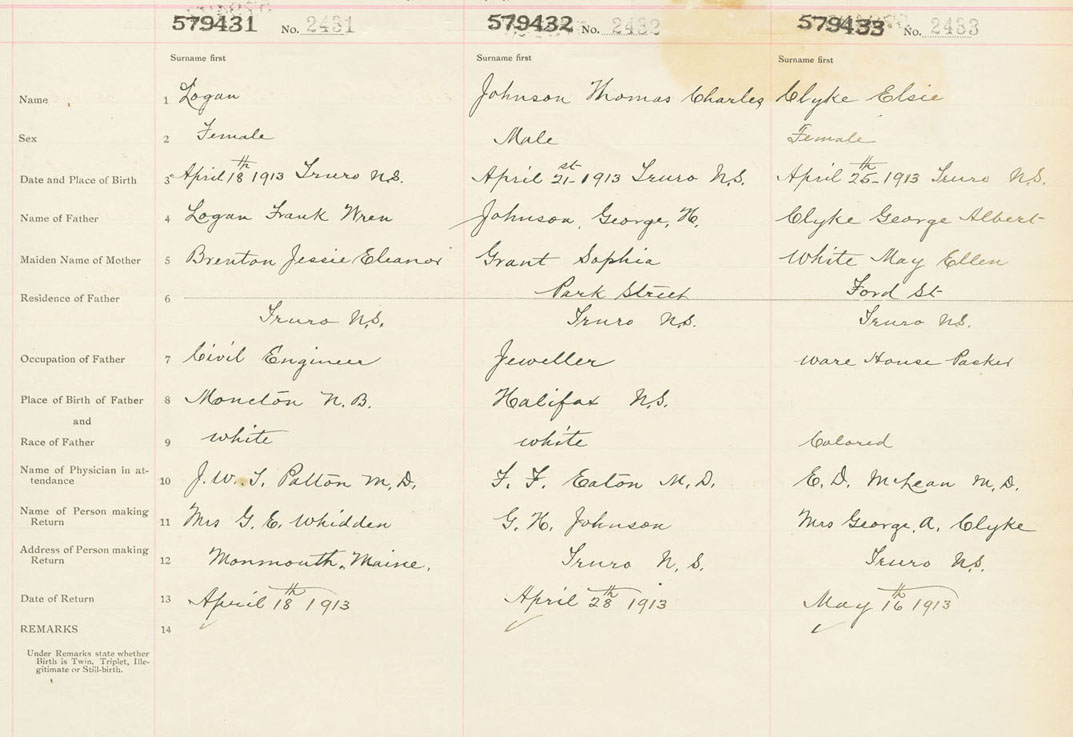 579431 No. 2431 579432 No. 2432 579433 No. 2433
Surname first Surname first Surname first
Name 1 Logan Johnson Thomas Charles Clyke Elsie
Sex 2 Female Male Female
Date and Place of Birth 3 April 18th 1913 Truro N.S. April 21st 1913 Truro N.S. April 25th 1913 Truro N.S.
Name of Father 4 Logan Frank Wren Johnson, George, H. Clyke George Albert
Maiden Name of Mother 5 Brenton Jessie Eleanor Grant Sophia White May Ellen
Residence of Father 6 Park Street Ford St
Truro N.S. Truro N.S. Truro N.S.
Occupation of Father 7 Civil Engineer Jeweller Ware House Packer
Place of Birth of Father 8 Moncton N.B. Halifax N.S.
and
Race of Father 9 white white Colored
Name of Physician in at-
tendance 10 J. W. T. Patton M.D. F. F. Eaton M.D. E. D. McLean M.D.
Name of Person making
Return 11 Mrs G. E. Whidden G. H. Johnson Mrs George. A. Clyke
Address of Person making
Return 12 Monmouth, Maine. Truro N.S. Truro N.S.
Date of Return 13 April 18th 1913 April 28th 1913 May 16th 1913
REMARKS 14
Under Remarks state whether
Birth is Twin, Triplet, Ille-
gitimate or Still-birth.